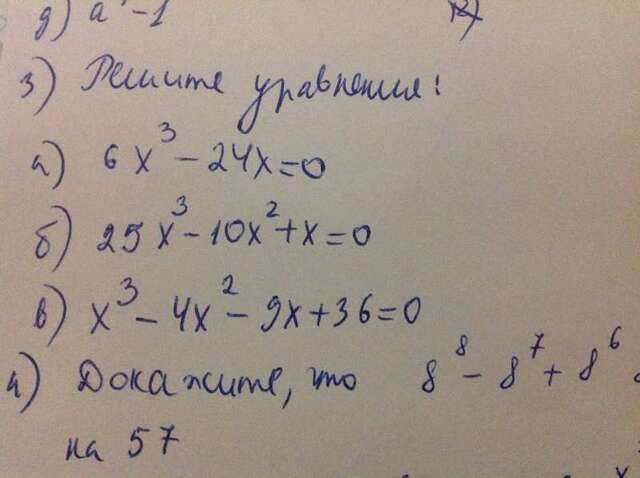 д) а -1
3) Решите уравнения:
а) 6x³ - 24x = 0
б) 25x³ - 10x² + x = 0
в) x³ - 4x² - 9x + 36 = 0
4) Докажите, что 8⁸ - 8⁷ + 8⁶
на 57